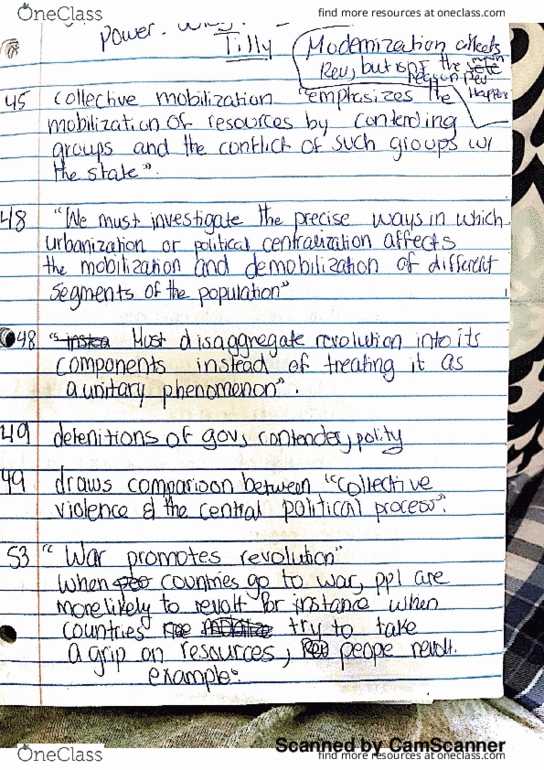 OneClass
find more resources at oneclass.com
power.
Tilly
Modernization affects
Rev, but isn't the main
reason rev
Happen
45 collective mobilization "emphasizes the
mobilization of resources by contending
groups and the conflict of such groups w/
the state".
48 "We must investigate the precise ways in which
urbanization or political centralization affects
the mobilization and demobilization of different
segments of the population"
48 Must disaggregate revolution into its
components instead of treating it as
a unitary phenomenon".
49 definitions of gov, contender, polity
49 draws comparison between "collective
violence & the central political process".
53 "War promotes revolution"
When countries go to war, ppl are
more likely to revolt for instance when
countries try to take
a grip on resources, people revolt.
example:
Scanned by CamScanner
OneClass
find more resources at oneclass.com